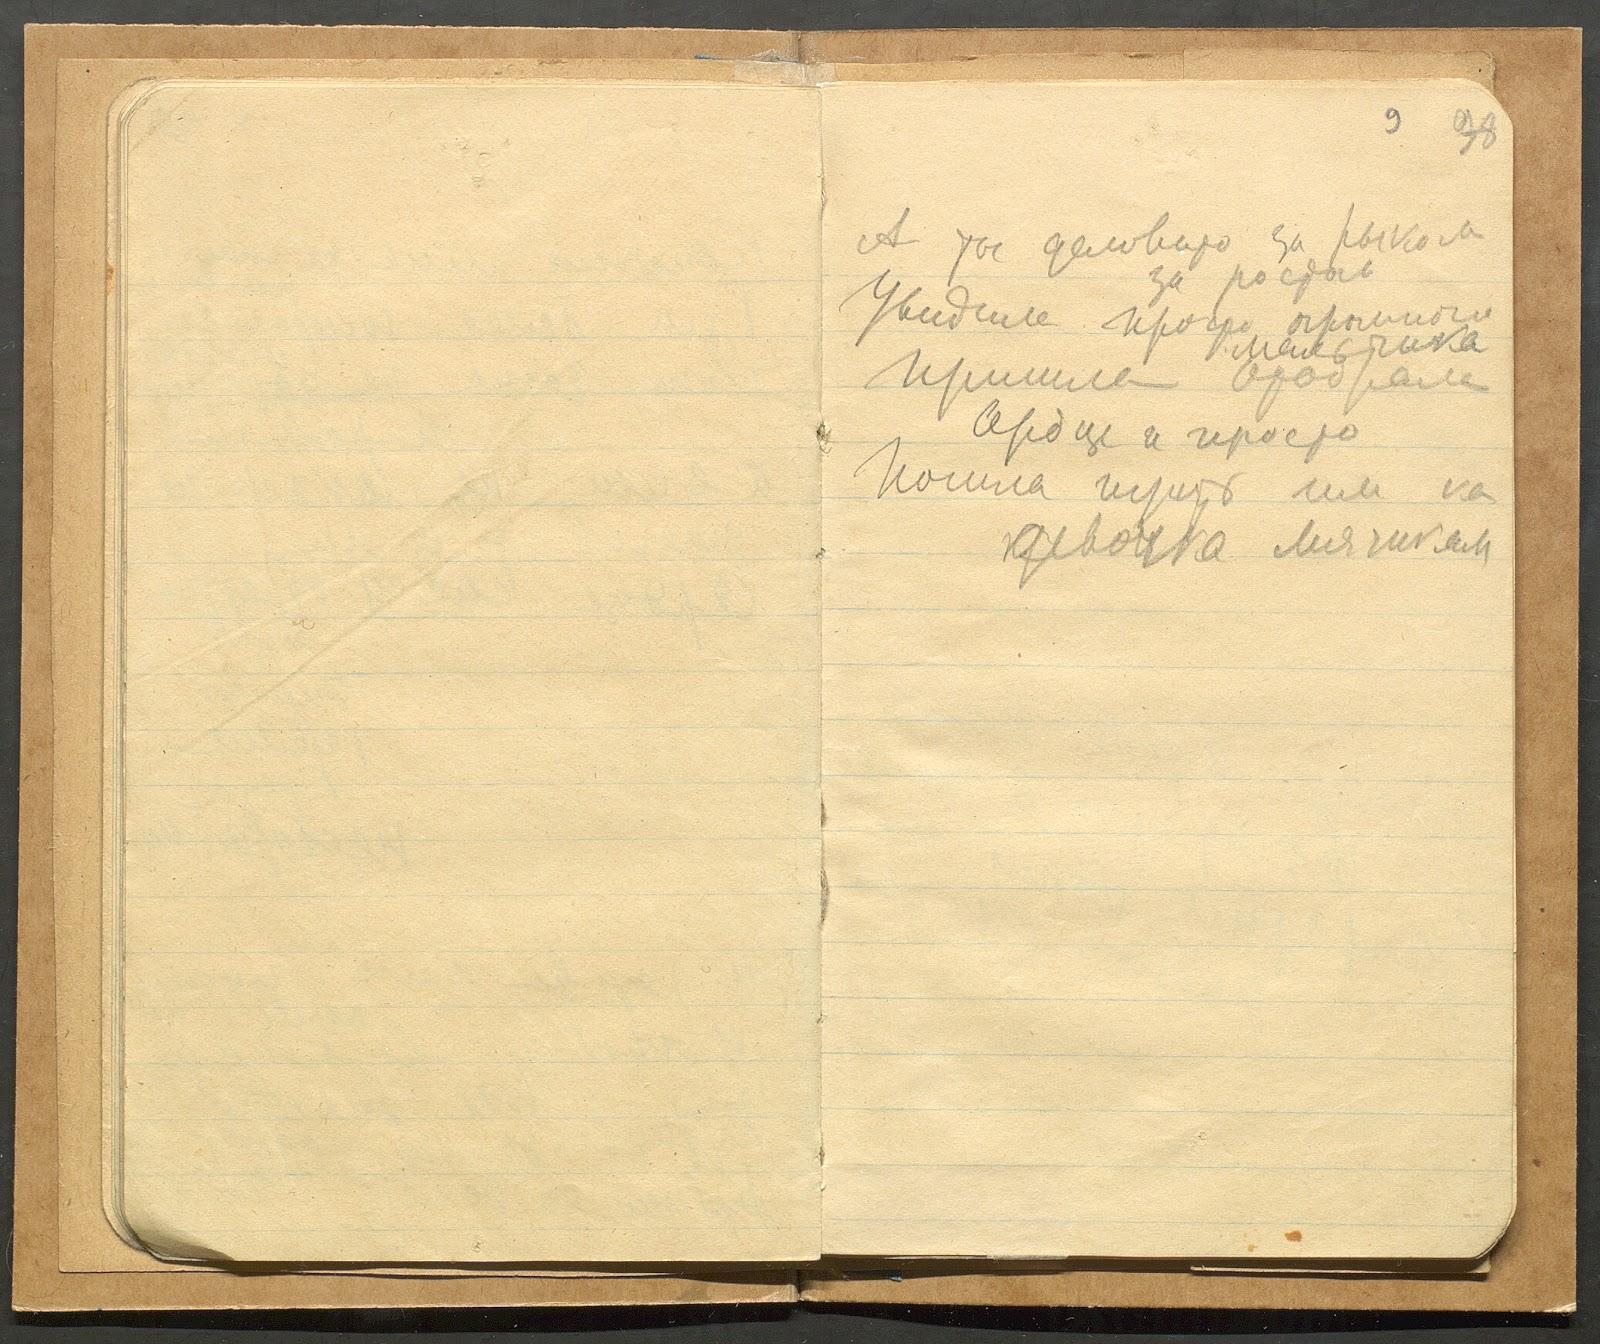 9 98
А ты деловито за рыком
за ростом
Увидила просто огромного
мальчика
Пришла отобрала
Сердце и просто
Пошла играть им ка
девочка мячикам